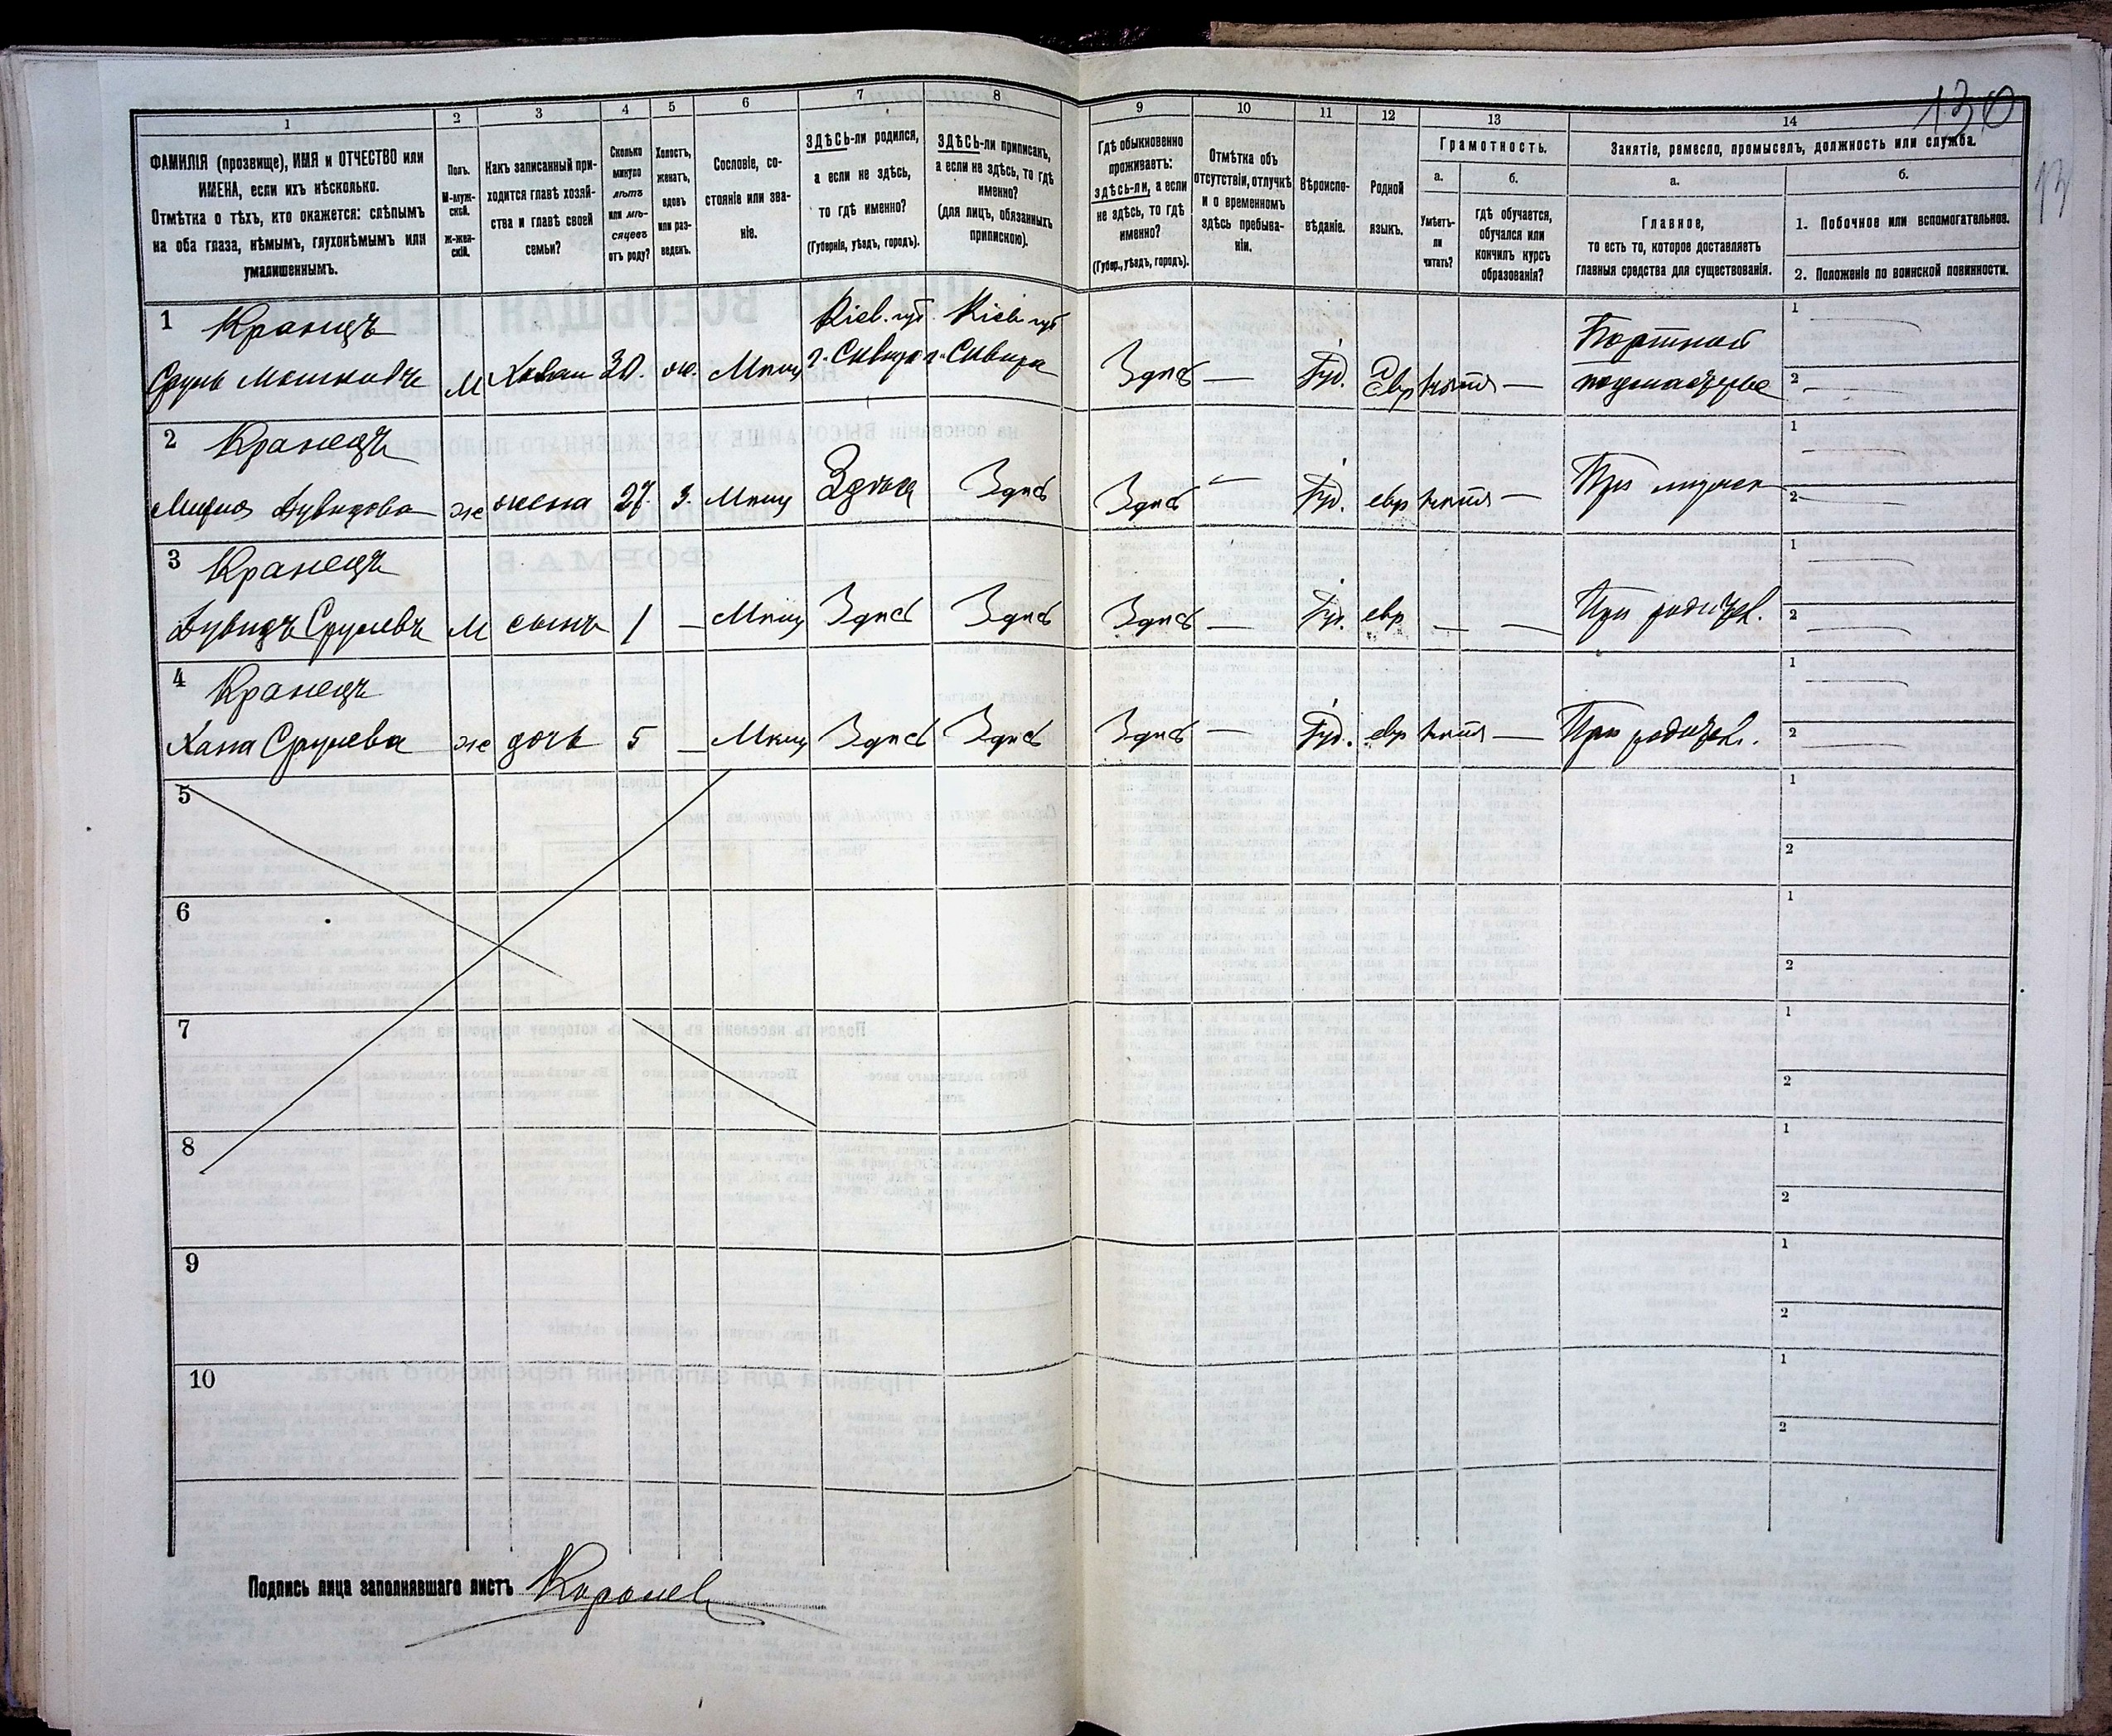 130
13
1
2
3
4
5
6
7
8
9
10
11
12
13
14
ФАМИЛІЯ (прозвище), ИМЯ и ОТЧЕСТВО или
ИМЕНА, если ихъ нѣсколько.
Отмѣтка о тѣхъ, кто окажется: слѣпымъ
на оба глаза, нѣмымъ, глухонѣмымъ или
умалишеннымъ.
Полъ.
М-муж-
ской.
Ж-жен-
скій.
Какъ записанный при-
ходится главѣ хозяй-
ства и главѣ своей
семьи?
Сколько
минуло
лѣтъ
или мѣ-
сяцевъ
отъ роду?
Холостъ,
женатъ,
вдовъ
или раз-
веденъ.
Сословіе, со-
стояніе или зва-
ніе.
ЗДѢСЬ-ли родился,
а если не здѣсь,
то гдѣ именно?
(Губернія, уѣздъ, городъ).
ЗДѢСЬ-ли приписанъ,
а если не здѣсь, то гдѣ
именно?
(для лицъ, обязанныхъ
припискою).
Гдѣ обыкновенно
проживаетъ:
здѣсь-ли, а если
не здѣсь, то гдѣ
именно?
(Губер., уѣздъ, городъ).
Отмѣтка объ
отсутствіи, отлучкѣ
и о временномъ
здѣсь пребыва-
ніи.
Вѣроиспо-
вѣданіе.
Родной
языкъ.
Грамотность.
а.
б.
Умѣетъ-
ли
читать?
гдѣ обучается,
обучался или
кончилъ курсъ
образованія?
Занятіе, ремесло, промыселъ, должность или служба.
а.
б.
Главное,
то есть то, которое доставляетъ
главныя средства для существованія.
1. Побочное или вспомогательное.
2. Положеніе по воинской повинности.
1 Кранецъ Кіев. губ. Кіев. губ. Портной 1
Сруль Мошковъ М Хозяин 30. ж. Мѣщ г. Сквира г. Сквира Здѣсь — Іуд. Евр нѣтъ — подмастерье 2
2 Кранецъ 1
Дувидова же жена 27. З. Мѣщ Здѣсь Здѣсь Здѣсь — Іуд. евр нѣтъ — При мужѣ 2
3 Кранецъ 1
Дувидъ Срулевъ М сынъ 1 — Мѣщ Здѣсь Здѣсь Здѣсь — Іуд. евр — — При родител. 2
4 Кранецъ 1
Хана Срулева же дочь 5 — Мѣщ Здѣсь Здѣсь Здѣсь — Іуд. евр нѣтъ — При родител. 2
5 1
2
6 1
2
7 1
2
8 1
2
9 1
2
10 1
2
Подпись лица заполнявшаго листъ